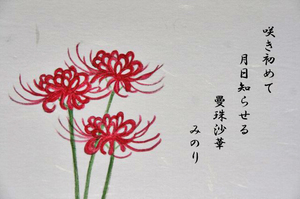 咲き初めて
月日知らせる
曼珠沙華
みのり